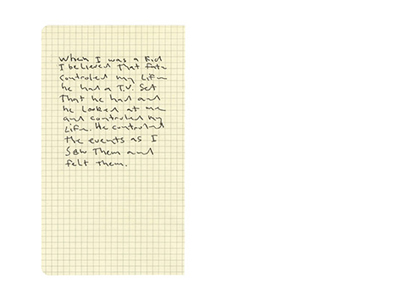 When I was a kid
I believed that fate
controled my life
he had a T.V. set
That he had and
he looked at me
and controled my
life. He controled
the events as I
saw them and
felt them.